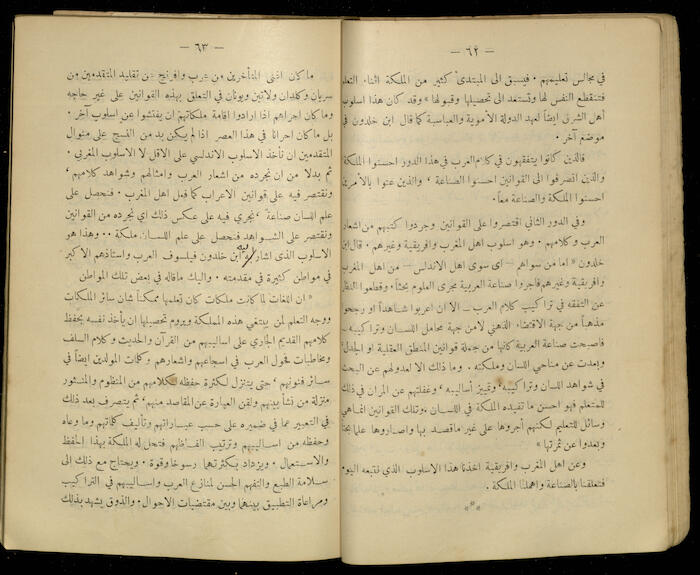 — ٦٢ —
في مجالس تعليمهم . فيسبق الى المبتدئ كثير من الملكة اثناء التعلم
فتنقطع النفس لها وتستعد الى تحصيلها وقبولها » وقد كان هذا اسلوب
اهل الشرق ايضاً لعهد الدولة الأموية والعباسية كما قال ابن خلدون في
موضع آخر .
فالذين كانوا يتفقهون في كلام العرب في هذا الدور احسنوا الملكة
والذين انصرفوا الى القوانين احسنوا الصناعة ، والذين عنوا بالأمرين
احسنوا الملكة والصناعة معاً .
وفي الدور الثاني اقتصروا على القوانين وجردوا كتبهم من اشعار
العرب وكلامهم . وهو اسلوب اهل المغرب وافريقية وغيرهم . قال ابن
خلدون « اما من سواهم — اي سوى اهل الاندلس — من اهل المغرب
وافريقية وغيرهم فاجروا صناعة العربية مجرى العلوم بحثاً ، وقطعوا النظر
عن التفقه في تراكيب كلام العرب — الا ان اعربوا شاهداً او رجحوا
مذهباً من جهة الاقتضاء الذهني لا من جهة محامل اللسان وتراكيبه —
فاصبحت صناعة العربية كأنها من جملة قوانين المنطق العقلية او الجدل ،
وبعدت عن مناحي اللسان وملكته . وما ذلك الا لعدولهم عن البحث
في شواهد اللسان وتراكيبه ، وتمييز أساليبه ، وغفلتهم عن المران في ذلك
للمتعلم فهو احسن ما تفيده الملكة في اللسان . وتلك القوانين انما هي
وسائل للتعليم لكنهم أجروها على غير ماقصد بها واصاروها علما بحتاً
وبعدوا عن ثمرتها »
وعن اهل المغرب وافريقية اخذنا هذا الاسلوب الذي نتبعه اليوم
فتعلقنا بالصناعة واهملنا الملكة .
***
— ٦٣ —
ما كان اغنى المتأخرين من عرب وافرنج عن تقليد المتقدمين من
سريان وكلدان ولاتين ويونان في التعلق بهذه القوانين على غير حاجه
وما كان اجراهم اذا ارادوا اقامة ملكاتهم ان يفتشوا عن اسلوب آخر .
بل ماكان احرانا في هذا العصر اذا لم يكن بد من النسج على منوال
المتقدمين ان نأخذ الاسلوب الاندلسي على الاقل لا الاسلوب المغربي .
ثم بدلا من ان نجرده من اشعار العرب وامثالهم وشواهد كلامهم ،
ونقتصر فيه على قوانين الاعراب كما فعل اهل المغرب . فنحصل على
علم اللسان صناعة ، نجري فيه على عكس ذلك اي نجرده من القوانين
ونقتصر على الشواهد فنحصل على علم اللسان ملكة .. وهذا هو
الاسلوب الذي اشار اليه ابن خلدون فيلسوف العرب واستاذهم الاكبر
في مواطن كثيرة في مقدمته . واليك ماقاله في بعض تلك المواطن
« ان اللغات لما كانت ملكات كان تعلمها ممكناً شان سائر الملكات
ووجه التعلم لمن يبتغي هذه المملكة ويروم تحصيلها ان يأخذ نفسه بحفظ
كلامهم القديم الجاري على اساليبهم من القرآن والحديث وكلام السلف
ومخاطبات فحول العرب في اسجاعهم واشعارهم وكلمات المولدين ايضاً في
سائر فنونهم ، حتى يتنزل لكثرة حفظه لكلامهم من المنظوم والمنثور
منزلة من نشأ بينهم ولقن العبارة عن المقاصد منهم ، ثم يتصرف بعد ذلك
في التعبير عما في ضميره على حسب عباراتهم وتأليف كلماتهم وما وعاه
وحفظه من اساليبهم وترتيب الفاظهم فتحل له الملكة بهذا الحفظ
والاستعمال . ويزداد بكثرتهما رسوخا وقوة . ويحتاج مع ذلك الى
سلامة الطبع والتفهم الحسن لمنازع العرب واساليبهم في التراكيب
ومراعاة التطبيق بينهما وبين مقتضيات الاحوال . والذوق يشهد بذلك